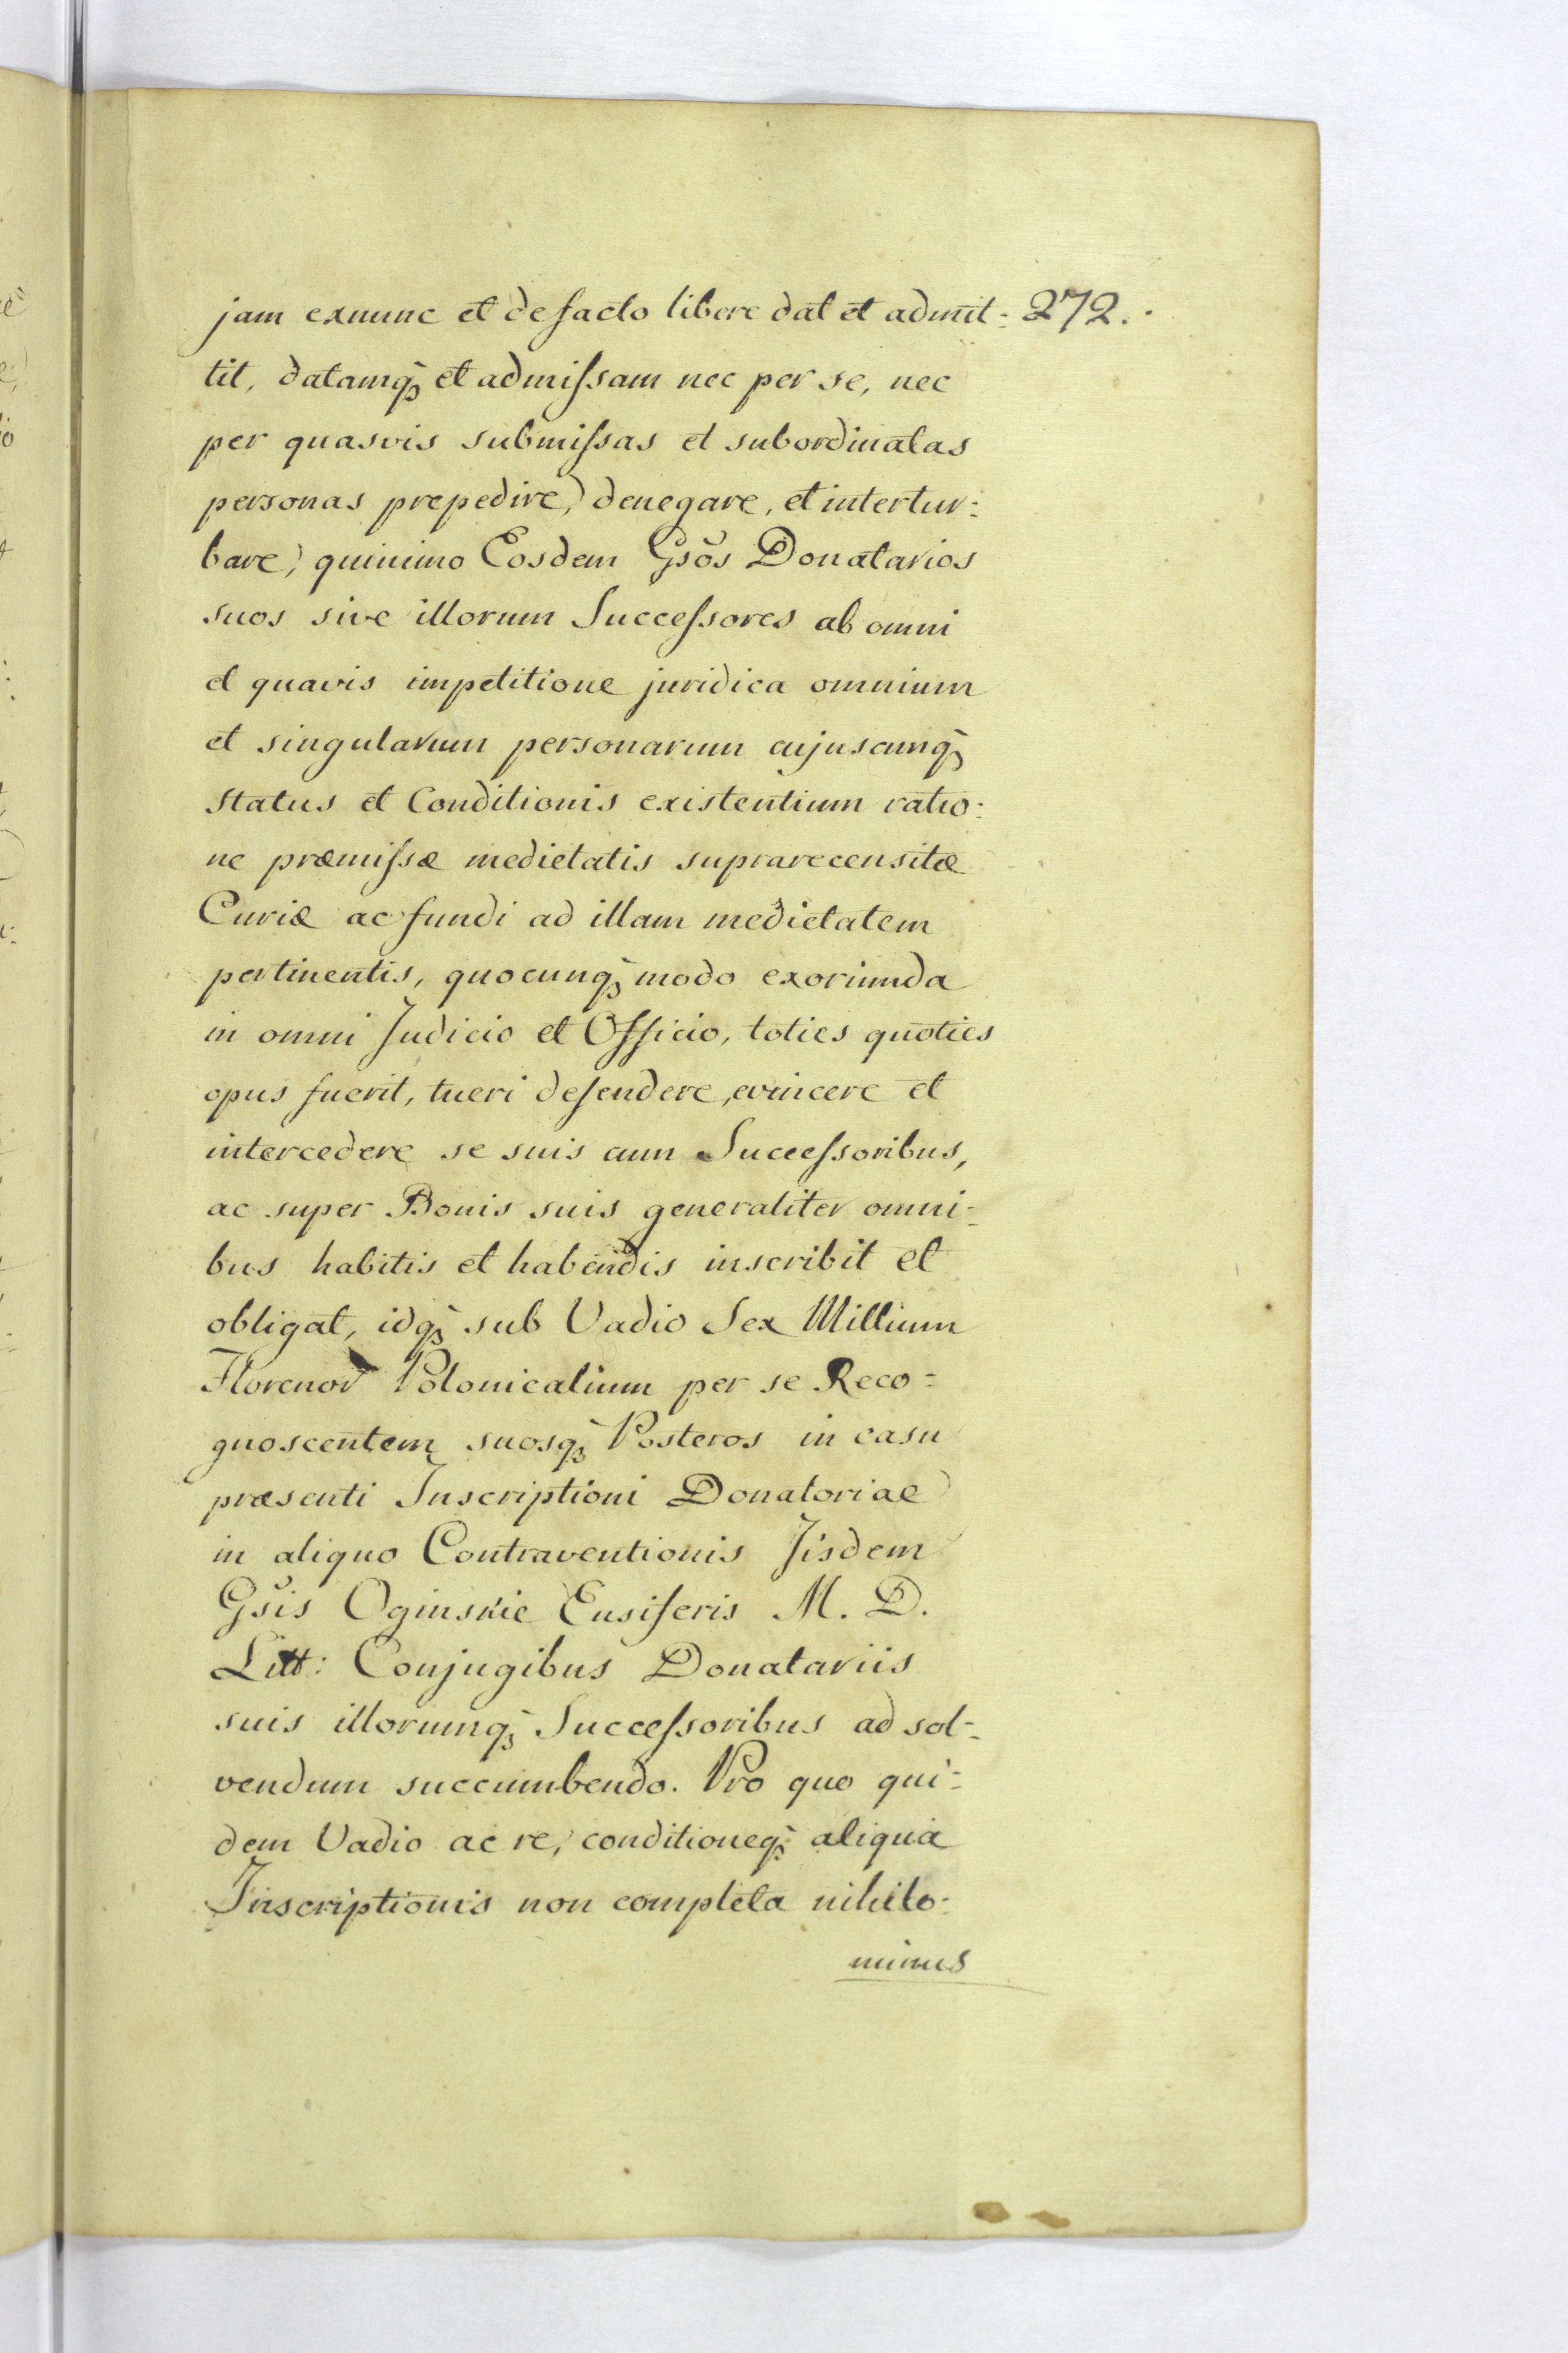 jam exnunc et de facto libere dat et admit=
272.
tit, datamq̃ et admiſsam nec per se, nec
per quasvis submiſsas et subordinatas
personas prepedire, denegare, et intertur=
bare, quinimo Eosdem Gsõs Donatarios
suos sive illorum Succeſsores ab omni
et quavis impetitione juridica omnium
et singularum personarum cujuscunq̃
status et Conditionis existentium ratio=
ne præmiſsæ medietatis suprarecensitæ
Curiæ ac fundi ad illam medietatem
pertinentis, quocunq̃ modo exoriunda
in omni Judicio et Officio, toties quoties
opus fuerit, tueri defendere, evincere et
intercedere se suis cum Succeſsoribus,
ac super Bonis suis generaliter omni=
bus habitis et habendis inscribit et
obligat, idq̃ sub Vadio Sex Millium
Florenor Polonicalium per se Reco=
gnoscentem suosq̃ Posteros in casu
præsenti Inscriptioni Donatoriae
in aliquo Contraventionis Iisdem
Gsĩs Oginskie Ensiferis M. D.
Litt: Conjugibus Donatariis
suis illorumq̃ Succeſsoribus ad sol=
vendum succumbendo. Pro quo qui=
dem Vadio ac re, conditioneq̃ aliqua
Inscriptionis non completa nihilo=
minus